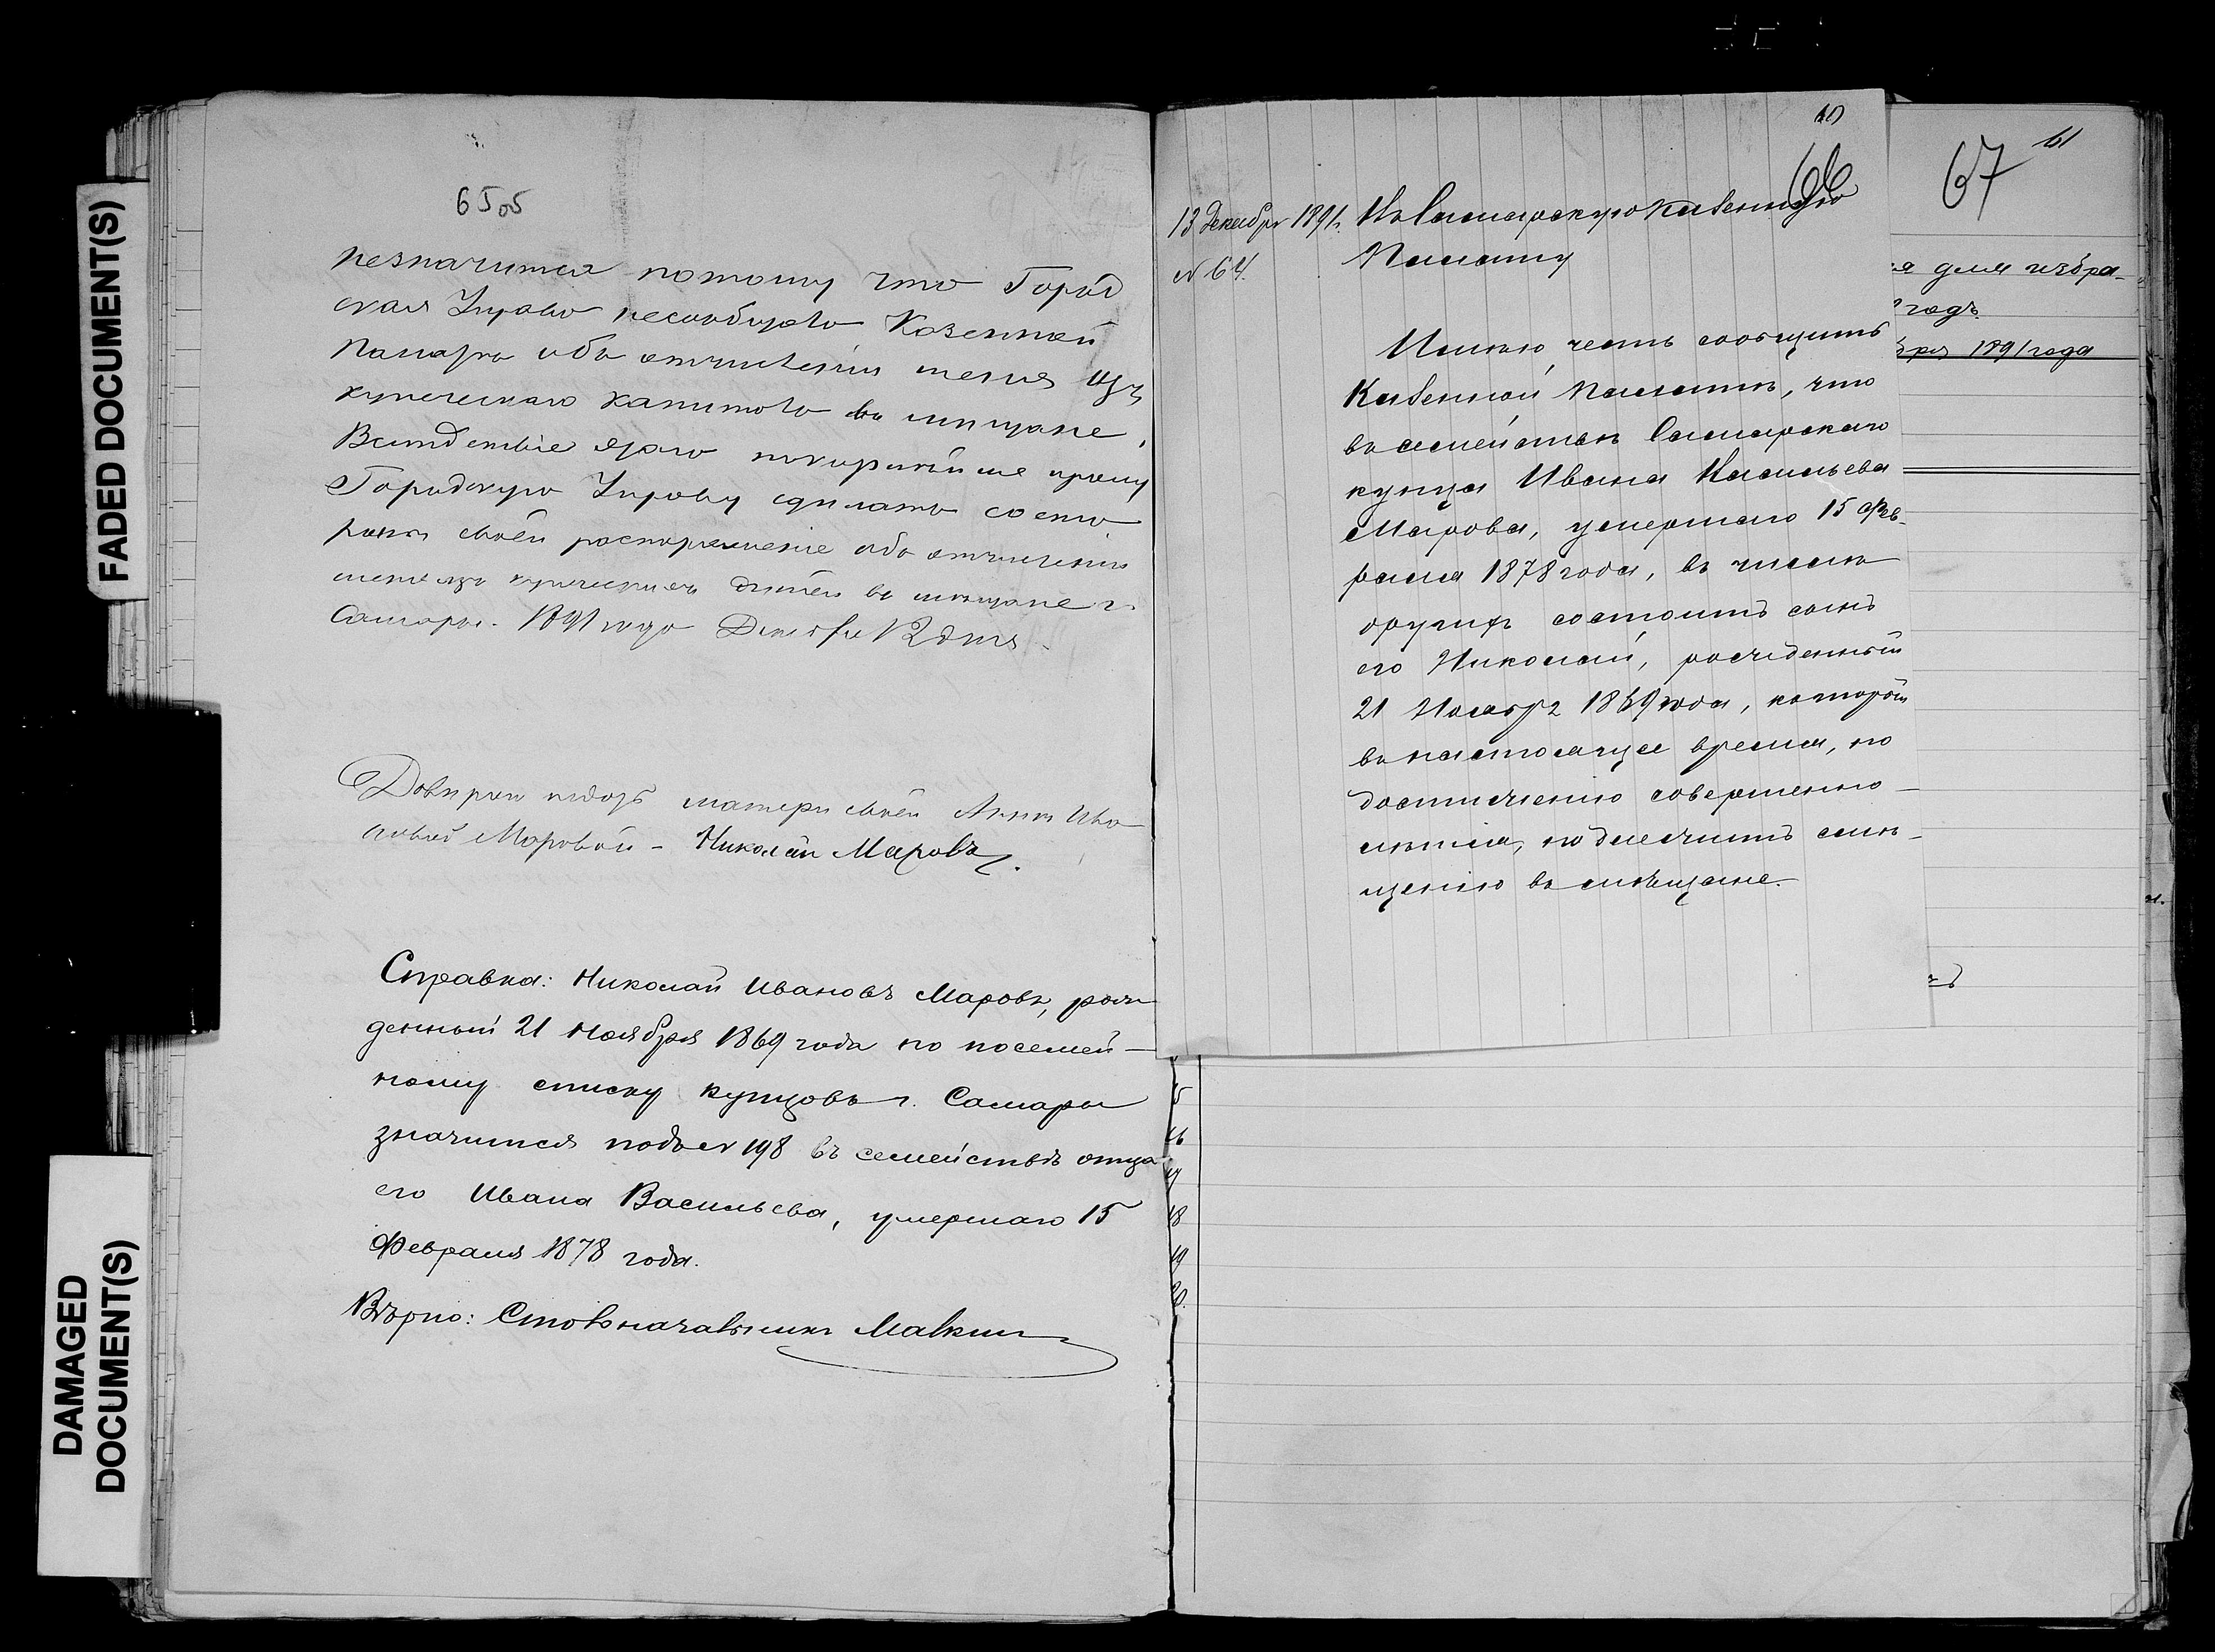 FADED DOCUMENT(S)
DAMAGED
DOCUMENT(S)
65об
незначится потому что Город
ская Управа несообщала Казенной
Палаты объ отчисленіи меня изъ
купеческаго капитала въ мищане,
Вслидствіе чего покорнѣйше прошу
Городскую Управу сдилать со сто
роны своей распоряженіе объ отчисленіи
меня изъ купеческихъ дѣтей въ мищане г.
Самары. 1891 года Декабря 12 дня
Довиряю подать матери своей Анни Ива
новой Маровой - Николай Маровъ.
Справка: Николай Ивановъ Маровъ, рож
денный 21 Ноября 1869 года по посемей-
ному списку купцовъ г. Самары
значится подъ № 198 въ семействѣ отца
его Ивана Васильева, умершаго 15
Февраля 1878 года.
Вѣрно: Столоначальникъ
60
66
13 Декабря 1891 г. Въ Самарскую Казенную
№ 64. Палату
Имѣю честь сообщить
Казенной Палатѣ, что
въ семействѣ Самарскаго
купца Ивана Васильева
Марова, умершаго 15 Фев-
раля 1878 года, въ числѣ
другихъ состоитъ сынъ
его Николай, рожденный
21 Ноября 1869 года, который
въ настоящее время, по
достиженію совершенно-
лѣтія, подлежитъ смѣ-
щенію въ мѣщане.
61
67
я для избра-
годъ
бря 1891 года
15
16
17
18
19
20.